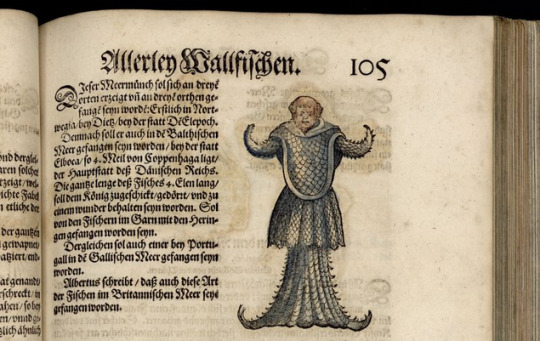 Allerley Wallfischen. 105
DIeser Meermünch sol sich an dreyẽ
orten erzeigt vñ an dreyẽ orthen ge-
fangẽ seyn wordẽ: Erstlich in Nort-
wegia/ bey Dietz/ bey der statt Dẽ Elepoch.
Demnach soll er auch in dẽ Balthischen
Meer gefangen seyn worden / bey der statt
Elboca/ so 4. Meil von Coppenhaga ligt/
der Hauptstatt deß Dänischen Reichs.
Die gantze lenge deß Fisches 4. Elen lang/
soll dem König zugeschickt/ gedört/ vnd zu
einem wunder behalten seyn worden. Sol
von den Fischern im Garn mit den Herin-
gen gefangen worden seyn.
Dergleichen sol auch einer bey Portu-
gall in dẽ Gallischen Meer gefangen seyn
worden.
Albertus schreibt / daß auch diese Art
der Fischen im Britannischen Meer seye
gefangen worden.
aren solche
ichte Fabel
n etliche der
der gantzen